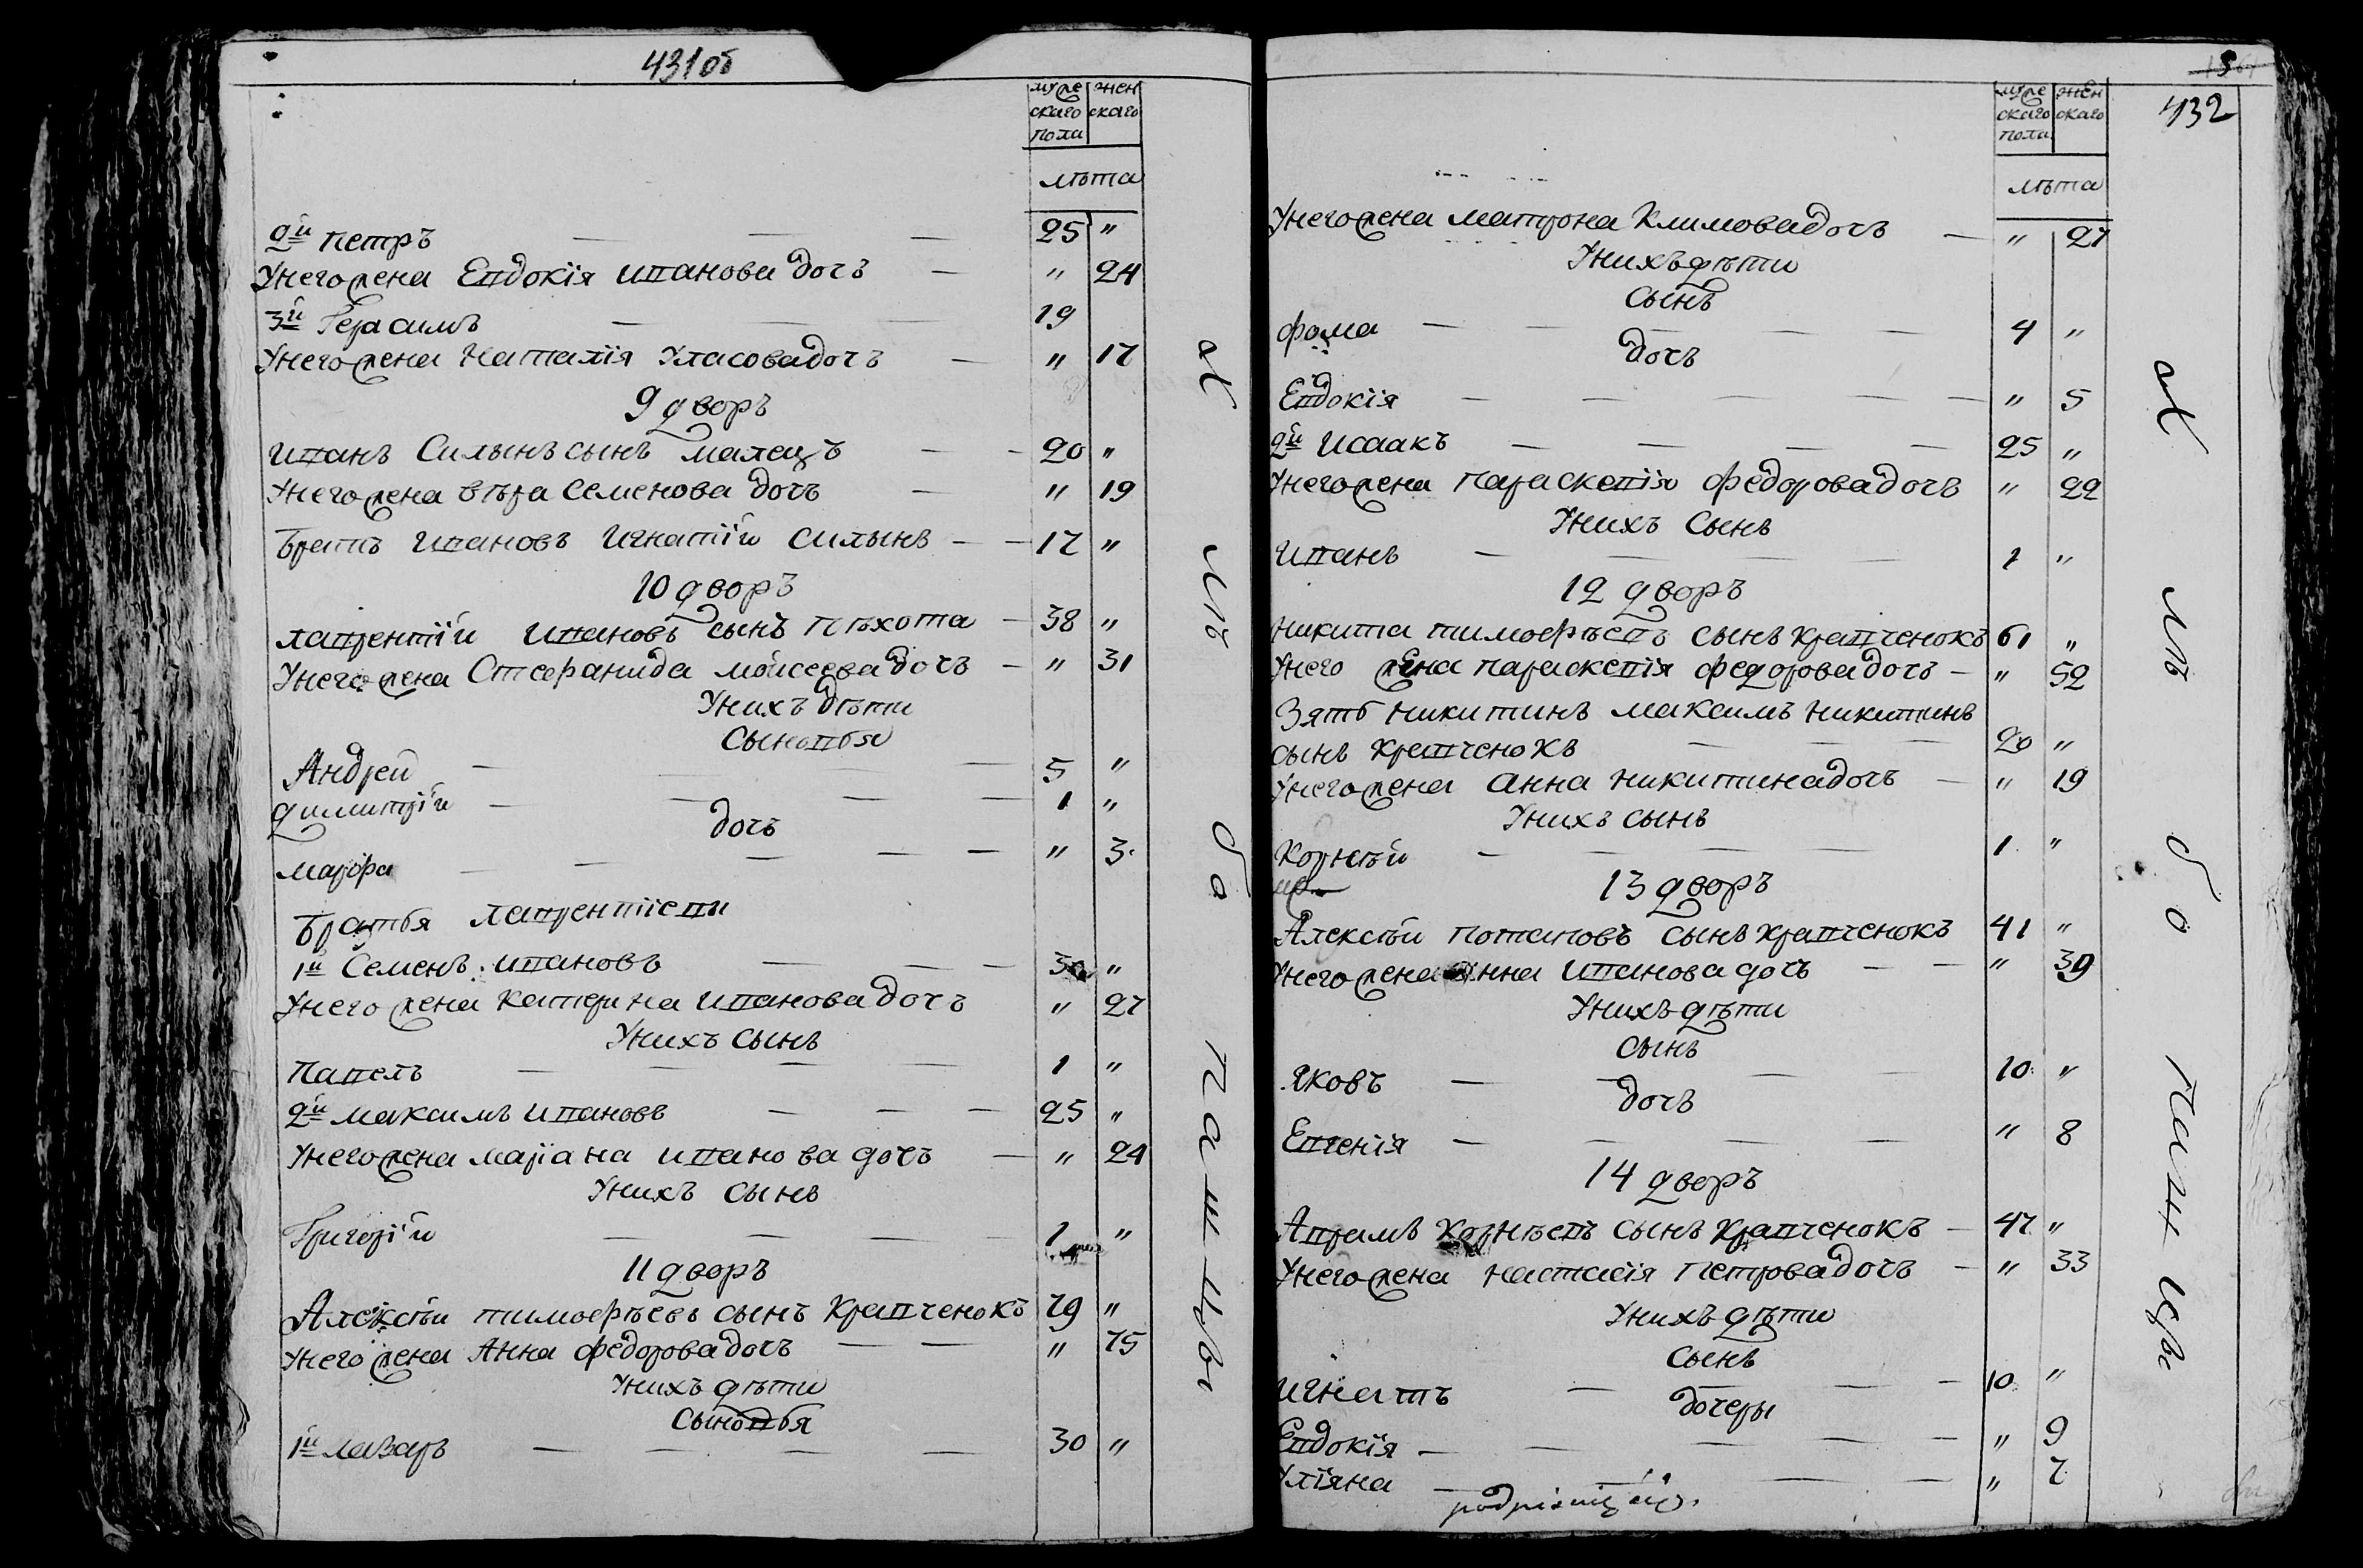 431об
муже ского пола
жен ского
лѣта
2й Петръ — — — 25 "
У него жена Евдокія Иванова дочь — " 24
3й Герасимъ — — — 19
У него жена Наталія Уласова дочъ — " 17
9 дворъ
Иванъ Силынъ сынъ Малецъ — — 20 "
У него жена Вѣра Семенова дочъ — " 19
Братъ Ивановъ Игнатій Силынъ — — 17 "
10 дворъ
Лаврентій Ивановъ сынъ Пѣхота — 38 "
У него жена Стефанида Мойсеева дочъ — " 31
У нихъ дѣти
Сыновья
Андрей — — — — 5 "
Димитрій — — — — 1 "
дочъ
Марфа — — — — — " 3
Братья Лаврентіеви
1й Семенъ Ивановъ — — — 30 "
У него жена Катерина Иванова дочъ " 27
У нихъ сынъ
Павелъ — — — — 1 "
2й Максимъ Ивановъ — — — 25 "
У него жена Маріана Иванова дочъ — " 24
У нихъ сынъ
Григорій — — — — 1 "
11 дворъ
Алексѣй Тимофѣевъ сынъ Кравченокъ 79 "
У него жена Анна Федорова дочъ — — " 75
У нихъ дѣти
Сыновья
1й Лазаръ — — — — 30 "
а лѣ бо пашнцы
432
муже ского пола
жен ского
лѣта
У него жена Матрона Климова дочъ — " 27
У нихъ дѣти
Сынъ
Фома — — — — — 4 "
дочъ
Евдокія — — — — — " 5
2й Исаакъ — — — — 25 "
У него жена Параскевія Федорова дочъ " 22
У нихъ Сынъ
Иванъ — — — — 1 "
12 дворъ
Никита Тимофѣевъ сынъ Кравченокъ 61 "
У него жена Параскевія Федорова дочъ — " 52
Зять Никитинъ Максимъ Никитинъ
сынъ Кравченокъ — — — 20 "
У него жена Анна Никитина дочъ — " 19
У нихъ сынъ
Корнѣй — — — — 1 "
13 дворъ
Алексѣй Потаповъ сынъ Кравченокъ 41 "
У него жена Анна Иванова дочъ — — " 39
У нихъ дѣти
Сынъ
Яковъ — — — — 10 "
дочъ
Евгенія — — — — " 8
14 дворъ
Аврамъ Корнѣевъ сынъ Кравченокъ — 47 "
У него жена Настасія Петрова дочъ — " 33
У нихъ дѣти
Сынъ
Игнатъ — — — — 10 "
дочеры
Евдокія — — — — — " 9
Уліяна — — — — " 7